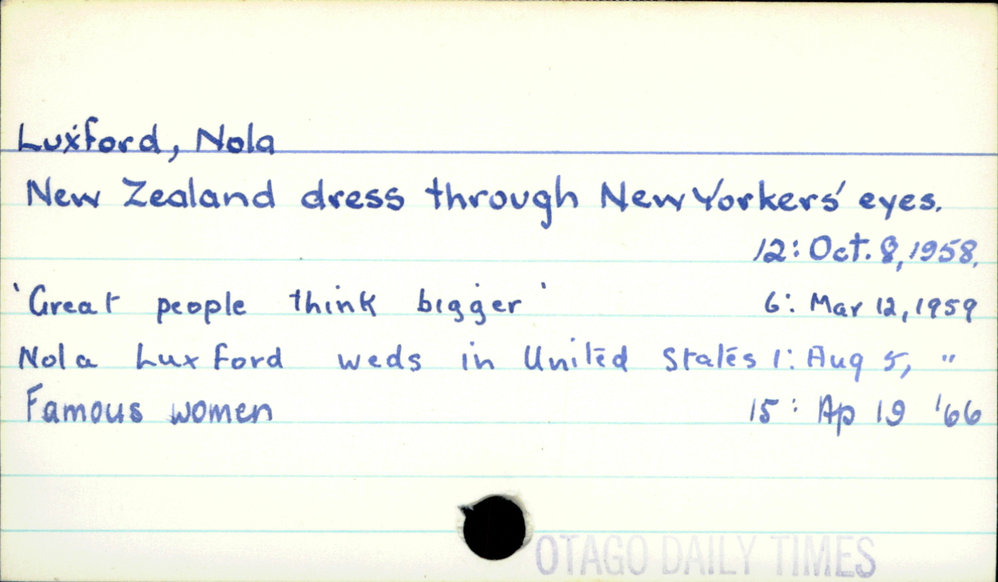 Luxford, Nola
New Zealand dress through New Yorkers' eyes.
12: Oct. 8, 1958.
'Great people think bigger' 6: Mar 12, 1959
Nola Luxford weds in United States 1: Aug 5, "
Famous women 15: Ap 19 '66
OTAGO DAILY TIMES